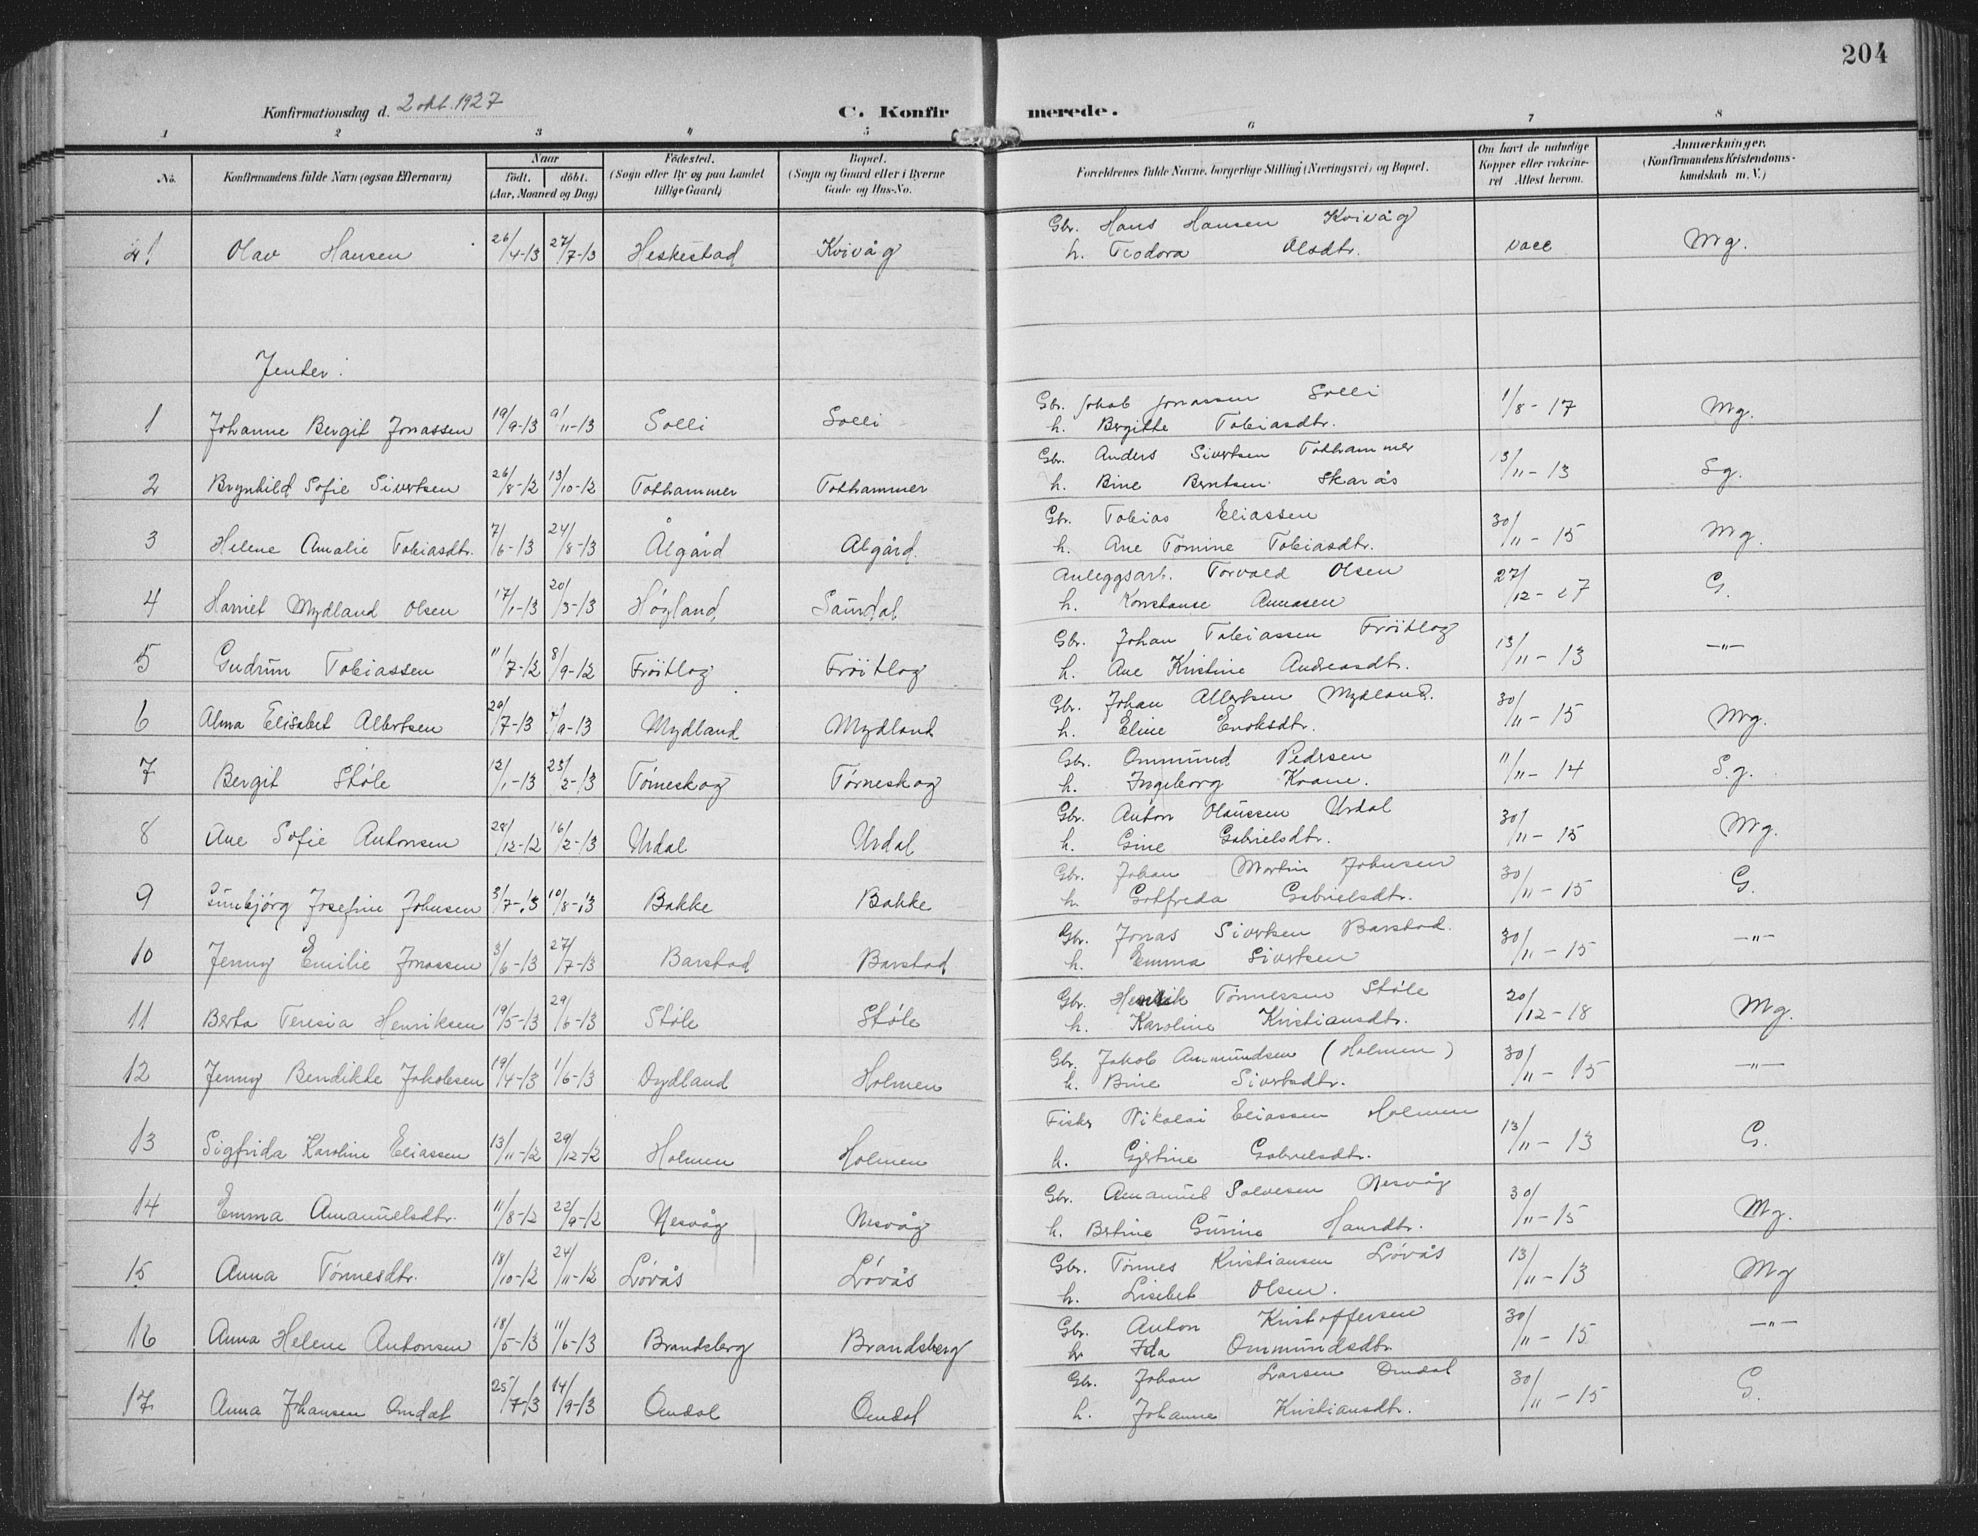 204
Konfirmationsdag d. 2 okt. 1927 C. Konfirmerede.
1 2 3 4 5 6 7 8
No. Konfirmandens fulde Navn (ogsaa Efternavn) Naar født. døbt. (Aar, Maaned og Dag) Fødested. (Sogn eller By og paa Landet tillige Gaard) Bopæl. (Sogn og Gaard eller i Byerne Gade og Hus-No. Forældrenes fulde Navne, borgerlige Stilling (Næringsvei) og Bopæl. Om havt de naturlige Kopper eller vaksineret Attest herom. Anmerkninger. (Konfirmandens Kristendomskundskab m. V.)
Olav Hansen 26/4-13 27/7-13 Heskestad Kvivåg Gbr. Hans Hansen Kvivåg vacc Mg.
h. Teodora Olsdtr.
Jenter.
1 Johanne Bergit Jonassen 19/9-13 9/11-13 Solli Solli Gbr. Jakob Jonassen Solli 1/8-17 Mg.
h. Bergitte Tobiasdtr.
2 Brynhild Sofie Sivertsen 26/8-12 13/10-12 Tothammer Tothammer Gbr. Anders Sivertsen Tothammer 13/11-13 Sg.
h. Bine Berntsen Skarås
3 Helene Amalie Tobiasdtr. 7/6-13 24/8-13 Ålgård Algård Gbr. Tobias Eliassen 30/11-15 Mg.
h. Ane Tomine Tobiasdtr.
4 Harriet Mydland Olsen 17/1-13 20/3-13 Høgland Saurdal Anleggsarb. Torvald Olsen 27/12-27 G.
h. Konstanse
5 Gudrun Tobiassen 11/7-12 8/9-12 Frøitlog Frøitlog Gbr. Johan Tobiassen Frøitlog 13/11-13 -"-
h. Ane Kristine Andreasdtr.
6 Alma Elisabet Albertsen 20/7-13 7/9-13 Mydland Mydland Gbr. Johan Albertsen Mydland. 30/11-15 Mg.
h. Eline Enoksdtr.
7 Bergit Støle 12/1-13 23/2-13 Tørneskog Tørneskog Gbr. Ommund Pedersen 11/11-14 S.g.
h. Ingeborg Kvane.
8 Ane Sofie Antonsen 28/12-12 16/2-13 Urdal Urdal Gbr. Anton Olaussen Urdal 30/11-15 Mg.
h. Gine Gabrielsdtr.
9 Gunbjørg Josefine Johnsen 3/7-13 10/8-13 Bakke Bakke Gbr. Johan Martin Johnsen 30/11-15 G.
h. Gotfreda Gabrielsdtr.
10 Jenny Emilie Jonassen 3/6-13 27/7-13 Barstad Barstad Gbr. Jonas Sivertsen Barstad. 30/11-15 -"-
h. Emma Sivertsen
11 Berta Teresia Henriksen 19/5-13 29/6-13 Støle Støle Gbr. Henrik Tønnessen Støle 20/12-18 Mg.
h. Karoline Kristiansdtr.
12 Jenny Bendikte Jakobsen 19/4-13 1/6-13 Dydland Holmen Gbr. Jakob Ammundsen (Holmen) 30/11-15 -"-
h. Bine Sivertsdtr.
13 Sigfrida Karoline Eliassen 13/11-12 29/12-12 Holmen Holmen Fisker Nikolai Eliassen Holmen 13/11-13 G.
h. Gjertine Gabrielsdtr.
14 Emma Amanuelsdtr. 11/8-12 22/9-12 Nesvåg Nesvåg Gbr. Amanuel Salvesen Nesvåg 30/11-15 Mg.
h. Bertine Gurine Hansdtr.
15 Anna Tønnesdtr. 18/10-12 24/11-12 Løvås Løvås Gbr. Tønnes Kristiansen Løvås 13/11-13 Mg
h. Lisebet Olsen.
16 Anna Helene Antonsen 18/5-13 11/6-13 Brandsberg Brandsberg Gbr. Anton Kristoffersen 30/11-15 -"-
h. Ida Ommundsdtr.
17 Anna Johansen Omdal 25/7-13 14/9-13 Omdal Omdal Gbr. Johan Larsen Omdal 30/11-15 G.
h. Johanne Kristiansdtr.